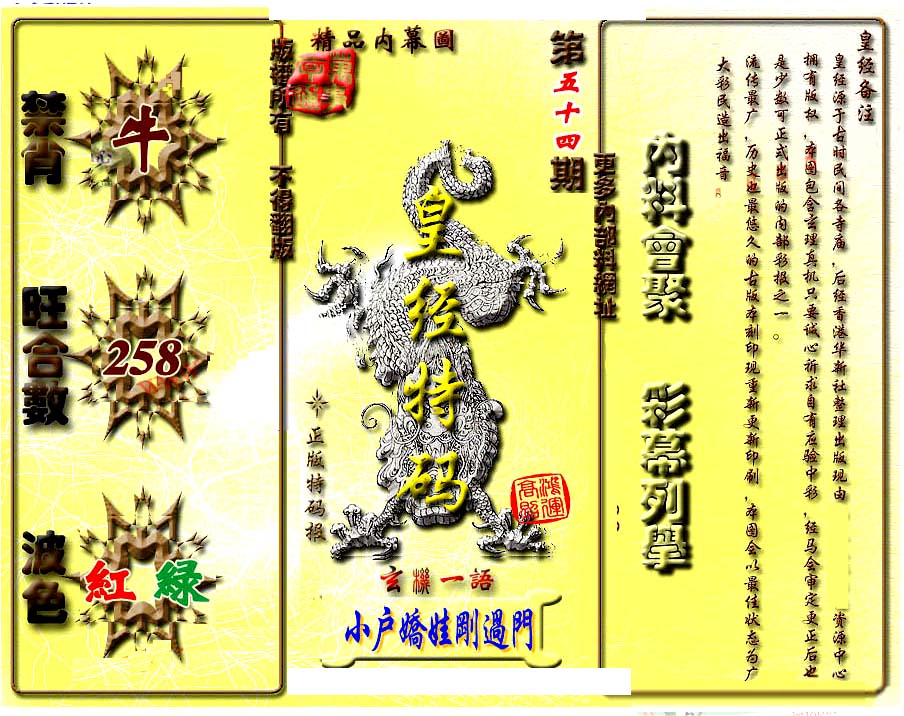 禁肖
牛
旺合數
258
波色
紅 綠
版權所有 不得翻版
精品内幕圖
第五十四期
皇经特码
正版特码报
鴻運高照
玄機一語
小户嬌娃剛過門
更多內部料網址
內料會聚 彩幕列舉
皇经备注
皇经源于古时民间各寺庙，后经香港华新社整理出版现由 资源中心
拥有版权，本图包含玄理真机只要诚心祈求自有应验中彩，经马会审定更正后也
是少数可正式出版的内部彩报之一。
流传最广，历史也最悠久的古版本刻印现重新更新印刷，本图会以最佳状态为广
大彩民造出福音